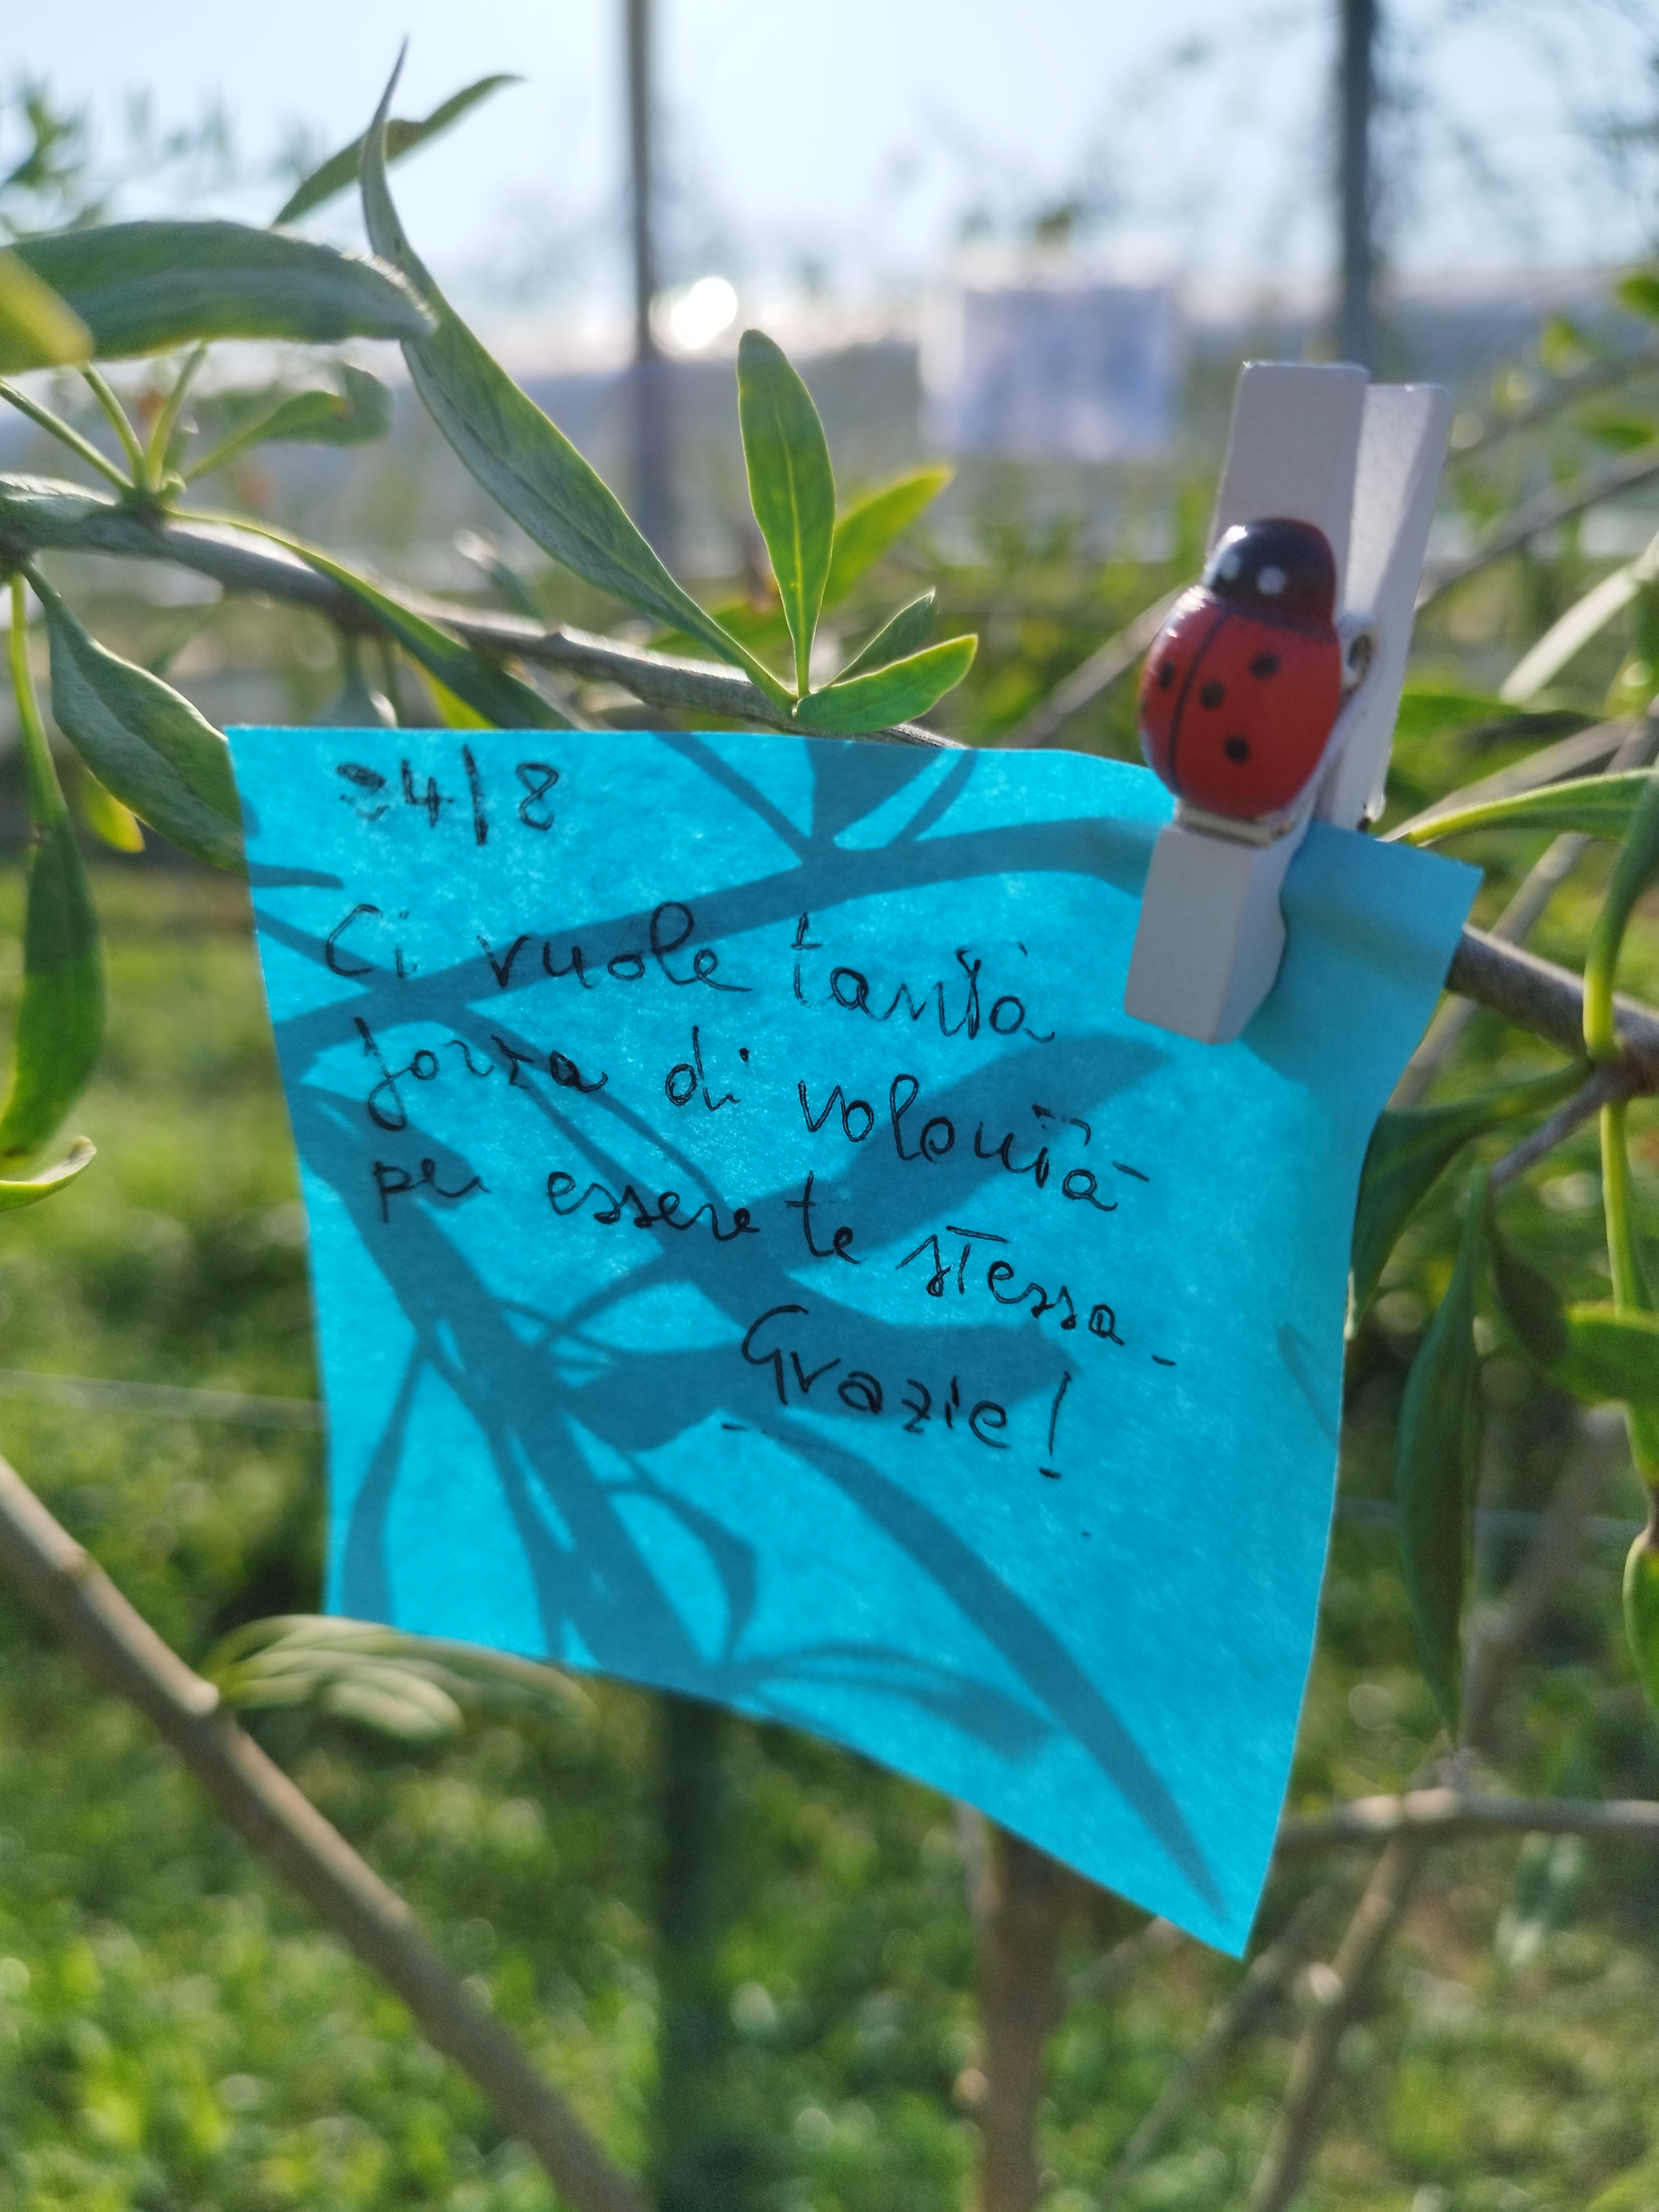 24/8
Ci vuole tanta
forza di volontà
per essere te stessa.
Grazie!